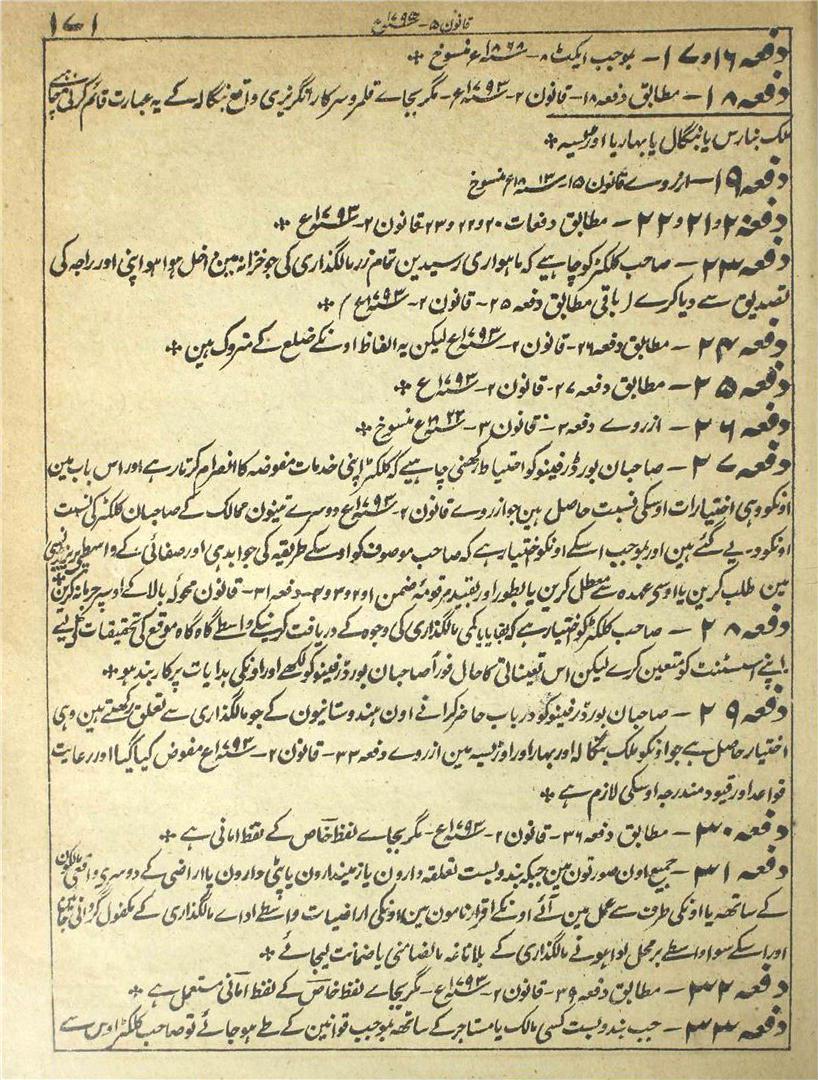 ۱۷۱ قانون ۵ - سنہ ۱۷۹۵ع
دفعہ ۱۶ و ۱۷ - بموجب ایکٹ ۸ - سنہ ۱۸۶۸ع منسوخ *
دفعہ ۱۸ - مطابق دفعہ ۱۸ - قانون ۲ - سنہ ۱۷۹۳ع - مگر بجاے قلمرو سرکار انگریزی واقع بنگالہ کے یہ عبارت قائم کرنی چاہیے
ملک بنارس یا بنگال یا بہار یا اوڑیسہ *
دفعہ ۱۹ - ازروے قانون ۱۵ - سنہ ۱۸۱۳ع منسوخ
دفعہ ۲۰ و ۲۱ و ۲۲ - مطابق دفعات ۲۰ و ۲۲ و ۲۳ - قانون ۲ - سنہ ۱۷۹۳ع *
دفعہ ۲۳ - صاحب کلکٹر کو چاہیے کہ ماہواری رسیدین تمام زر مالگذاری کی جو خزانہ مین داخل ہوا ہو اپنی اور راجہ کی
تصدیق سے دیا کرے (باقی مطابق دفعہ ۲۵ - قانون ۲ - سنہ ۱۷۹۳ع) *
دفعہ ۲۴ - مطابق دفعہ ۲۶ - قانون ۲ - سنہ ۱۷۹۳ع لیکن یہ الفاظ اونکے ضلع کے متروک ہین *
دفعہ ۲۵ - مطابق دفعہ ۲۷ - قانون ۲ - سنہ ۱۷۹۳ع *
دفعہ ۲۶ - ازروے دفعہ ۲ - قانون ۳ - سنہ ۱۸۲۲ع منسوخ *
دفعہ ۲۷ - صاحبان بورڈ رفینو کو احتیاط رکھنی چاہیے کہ کلکٹر اپنی خدمات مفوضہ کا انصرام کرتا رہے اور اس باب مین
اونکو وہی اختیارات اوسکی نسبت حاصل ہین جو ازروے قانون ۲ - سنہ ۱۷۹۳ع دوسرے تینون ممالک کے صاحبان کلکٹر کی نسبت
اونکو دیے گئے ہین اور بموجب اسکے اونکو اختیار ہے کہ صاحب موصوف کو اوسکے طریقہ کی جوابدہی اور صفائی کے واسطے پریزیڈنسی
مین طلب کرین یا اوسی عہدہ سے معطل کرین یا بطور اور بقید مرقومۂ ضمن ۱ و ۲ و ۳ - دفعہ ۳۱ - قانون محولہ بالا کے اوسپر جرمانہ کرین *
دفعہ ۲۸ - صاحب کلکٹر کو اختیار ہے کہ بقایا یا کمی مالگذاری کی وجوہ کے دریافت کرنیکے واسطے گاہ گاہ موقع کی تحقیقات کے لیے
اپنے اسسٹنٹ کو متعین کرے لیکن اس تعیناتی کا حال فوراً صاحبان بورڈ رفینو کو لکھے اور اونکی ہدایات پر کاربند ہو *
دفعہ ۲۹ - صاحبان بورڈ رفینو کو درباب حاضر کرانے اون ہندوستانیون کے جو مالگذاری سے تعلق رکھتے ہین وہی
اختیار حاصل ہے جو اونکو ملک بنگالہ اور بہار اور اوڑیسہ مین ازروے دفعہ ۳۳ - قانون ۲ - سنہ ۱۷۹۳ع مفوض کیا گیا اور رعایت
قواعد اور قیود مندرجہ اوسکی لازم ہے *
دفعہ ۳۰ - مطابق دفعہ ۳۶ - قانون ۲ - سنہ ۱۷۹۳ع - مگر بجاے لفظ خاص کے لفظ امانی ہے *
دفعہ ۳۱ - جمیع اون صورتون مین جبکہ بندوبست تعلقہ دارون یا زمیندارون یا پٹی دارون یا اراضی کے دوسرے واقعی مالکون
کے ساتھہ یا اونکی طرف سے عمل مین آئے اونکے اقرارنامون مین اونکی اراضیات واسطے اداے مالگذاری کے مکفول گردانی جائین
اور اسکے سوا واسطے برمحل ادا ہونے مالگذاری کے بلا ناغہ مالضامنی یا ضمانت لیجائے *
دفعہ ۳۲ - مطابق دفعہ ۳۹ - قانون ۲ - سنہ ۱۷۹۳ع - مگر بجاے لفظ خاص کے لفظ امانی مستعمل ہے *
دفعہ ۳۳ - جب بندوبست کسی مالک یا مستاجر کے ساتھہ بموجب قوانین کے طے ہو جائے تو صاحب کلکٹر اوس سے